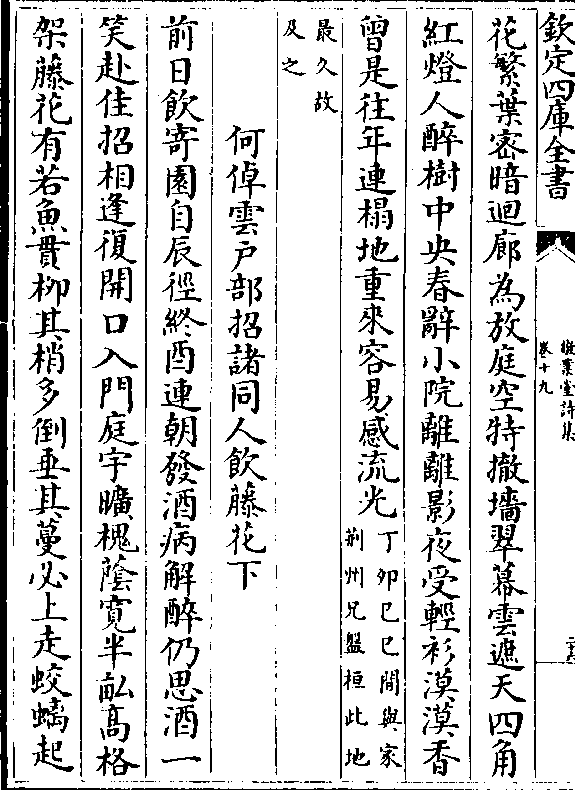 欽定四庫全書
敬業堂詩集
卷十九
花繁葉密暗迴廊為放庭空特撤墻翠幕雲遮天四角
紅燈人醉樹中央春辭小院離離影夜受輕衫漠漠香
曾是往年連榻地重來容易感流光
丁卯己巳間與家
荆州兄盤桓此地
最久故
及之
何倬雲户部招諸同人飲藤花下
前日飲寄園自辰徑終酉連朝發酒病解醉仍思酒一
笑赴佳招相逢復開口入門庭宇曠槐蔭寛半畆髙格
架藤花有若魚貫柳其梢多倒垂其蔓必上走蛟螭起